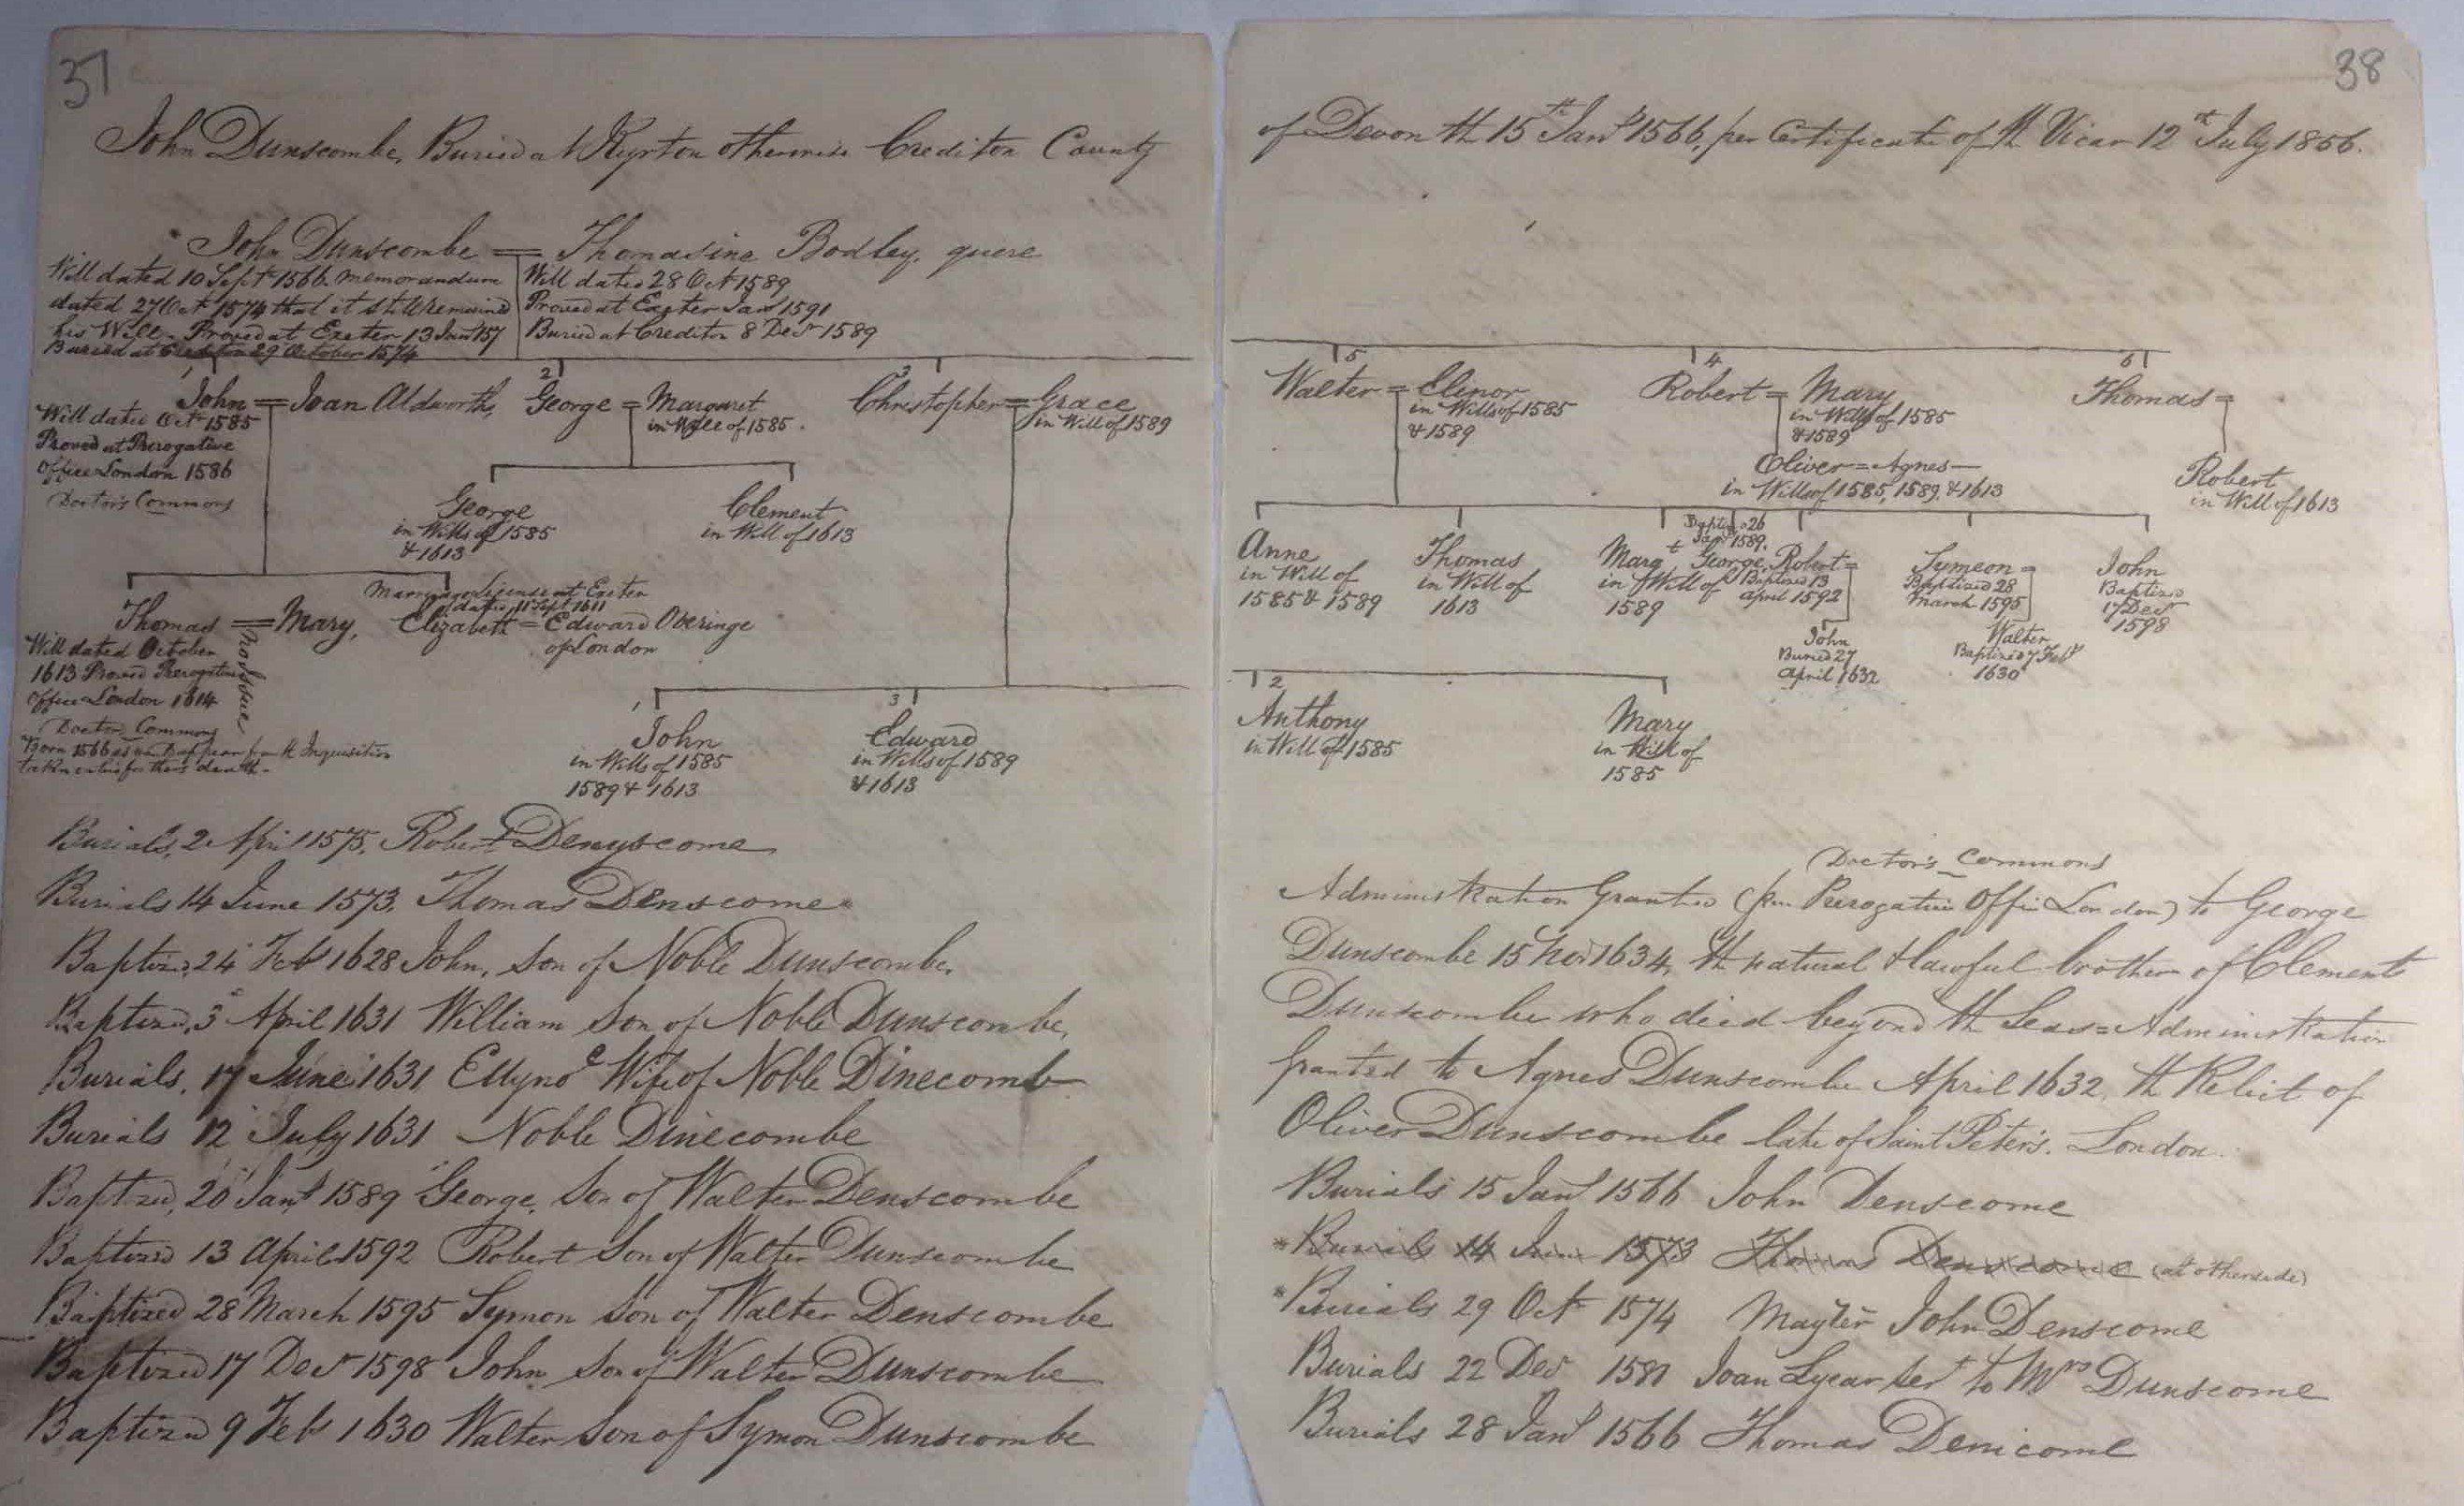 37
John Dunscombe, Buried at Kyrton otherwise Crediton County
John Dunscombe = Thomasine Bodley, quere
Will dated 10 Sept 1566 memorandum
dated 27 Oct 1574 that it still remained
his Will - Proved at Exeter 13 Jany 157
Buried at Crediton 29 October 1574
Will dated 28 Oct 1589
Proved at Exeter Jany 1591
Buried at Crediton 8 Decr 1589
1 2 3
John = Joan Aldworth, George = Margaret Christopher = Grace
Will dated Octr 1585
Proved at Prerogative
Office London 1586
Doctor's Commons
in Will of 1585.
in Will of 1589
George
in Wills of 1585
& 1613
Clement
in Will of 1613
Marriage License at Exeter
dated 11 Sept 1611
Thomas = Mary, Elizabeth = Edward Oberinge
of London
Will dated October
1613 Proved Prerogative
Office London 1614
Doctors Commons
Born 1566 as appear from th Inquisition
taken death -
No issue
1 3
John
in Wills of 1585
1589 & 1613
Edward
in Wills of 1589
& 1613
Burials, 2 April 1575, Robert Denyscome
Burials 14 June 1573, Thomas Denscome *
Baptized, 24 Feby 1628 John, Son of Noble Dunscombe,
Baptized, 3 April 1631 William Son of Noble Dunscombe,
Burials, 17 June 1631 Ellyno Wife of Noble Dinecomb
Burials 12 July 1631 Noble Dinecombe
Baptized, 20 Jany 1589 George, Son of Walter Denscombe
Baptized 13 April 1592 Robert Son of Walter Dunscombe
Baptized 28 March 1595 Symon Son of Walter Denscombe
Baptized 17 Decr 1598 John Son of Walter Dunscombe
Baptized 9 Feby 1630 Walter Son of Symon Dunscombe
38
of Devon th 15th Jany 1566, per Certificate of th Vicar 12th July 1856.
5 4 6
Walter = Elinor Robert = Mary Thomas =
in Wills of 1585
& 1589
in Wills of 1585
& 1589
Oliver = Agnes —
in Wills of 1585, 1589, & 1613
Robert
in Will of 1613
Anne
in Will of
1585 & 1589
Thomas
in Will of
1613
Margt
in Will of
1589
Baptized 26
Jany 1589.
George
Robert =
Baptized 13
April 1592
Symeon =
Baptized 28
March 1595
John
Baptized
17 Decr
1598
John
Buried 27
April 1632
Walter
Baptized 7 Feby
1630
2
Anthony
in Will of 1585
Mary
in Will of
1585
Doctor's Commons
Administration Granted (from Prerogative Office London) to George
Dunscombe 15 Nov 1634, th natural & lawful brother of Clement
Dunscombe who died beyond th Seas = Administration
granted to Agnes Dunscombe April 1632, th Relict of
Oliver Dunscombe late of Saint Peter's, London.
Burials 15 Jany 1566 John Denscome
* Burials 14 June 1573 Thomas Denscome (at otherside)
* Burials 29 Octr 1574 Mayter John Denscome
Burials 22 Decr Joan sert to Mrs Dunscome
Burials 28 Jany 1566 Thomas Denicome